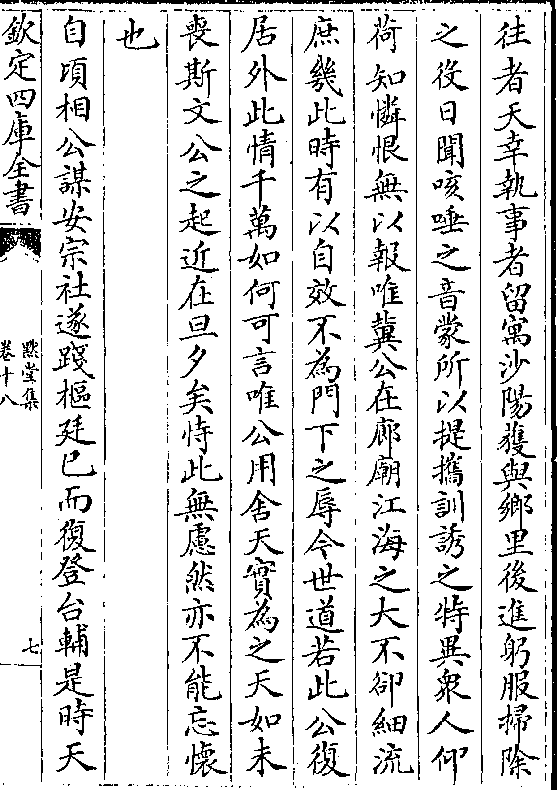 往者天幸執事者留寓沙陽獲與鄉里後進躬服掃除
之役日聞咳唾之音蒙所以提攜訓誘之特異衆人仰
荷知憐恨無以報唯冀公在廊廟江海之大不卻細流
庶幾此時有以自效不為門下之辱今世道若此公復
居外此情千萬如何可言唯公用舍天實為之天如未
喪斯文公之起近在旦夕矣恃此無慮然亦不能忘懷
也
自頃相公謀安宗社遂踐樞廷已而復登台輔是時天
欽定四庫全書
默堂集
卷十八
七